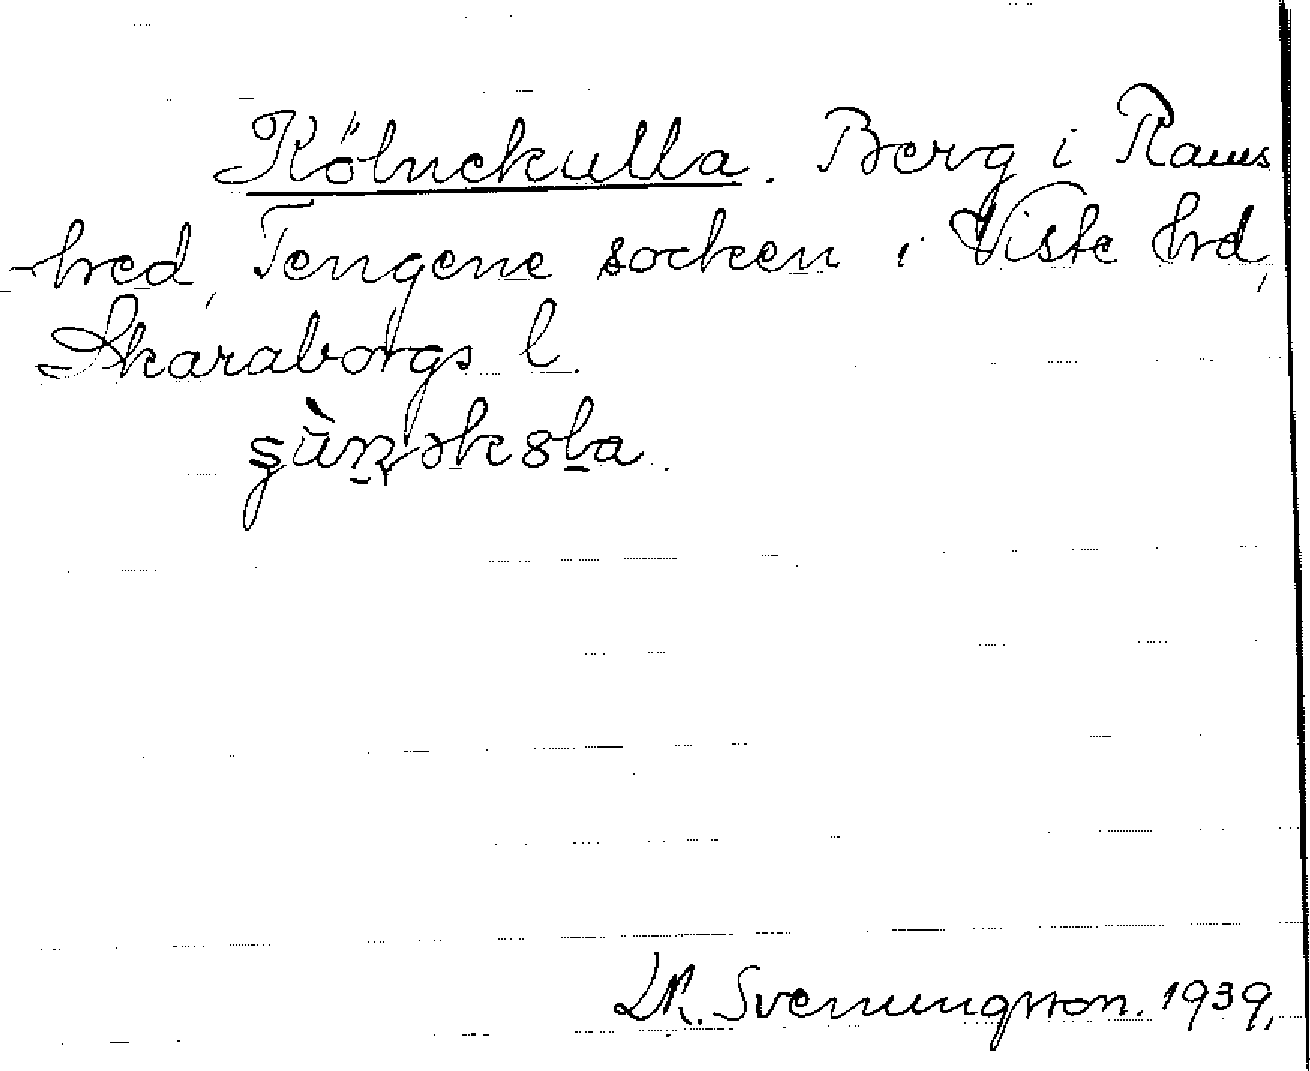 Kölnekulla. Berg i Rams
-hred, Tengene socken i Viste hrd,
Skaraborgs l.
D.R. Svenungsson. 1939.